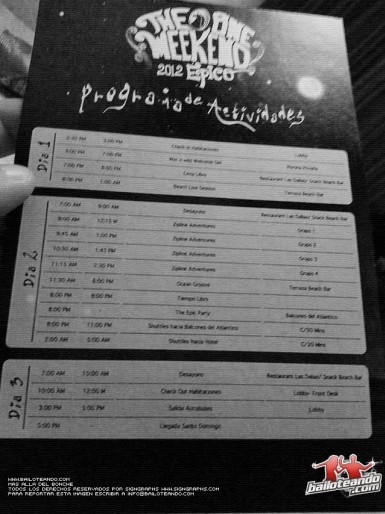 THE ONE
WEEKEND
2012 Épico
Programa de Actividades
Día 1
3:00 PM Check-in Habitaciones Lobby
5:00 PM 7:00 PM Welcome Set Piscina Privada
7:00 PM 8:00 PM Cena Libre Restaurant Las Salsas/ Snack Beach Bar
8:00 PM 1:00 AM Beach Love Session Terraza Beach Bar
Día 2
7:00 AM 9:00 AM Desayuno Restaurant Las Salsas/ Snack Beach Bar
8:00 AM 12:15 M Zipline Adventures Grupo 1
9:45 AM 1:00 PM Zipline Adventures Grupo 2
10:30 AM 1:45 PM Zipline Adventures Grupo 3
11:15 AM 2:30 PM Zipline Adventures Grupo 4
11:30 AM 6:00 PM Ocean Groove Terraza Beach Bar
6:00 PM 8:00 PM Tiempo Libre
8:00 PM The Epic Party Balcones del Atlantico
8:00 PM 11:00 PM Shuttles hacia Balcones del Atlantico C/30 Mins
2:00 AM 5:00 AM Shuttles hacia Hotel C/30 Mins
Día 3
7:00 AM 10:00 AM Desayuno Restaurant Las Salsas/ Snack Beach Bar
10:00 AM 12:00 M Check Out Habitaciones Lobby- Front Desk
3:00 PM 5:00 PM Salida Autobuses Lobby
5:00 PM Llegada Santo Domingo
WWW.BAILOTEANDO.COM
MAS ALLA DEL BONCHE
TODOS LOS DERECHOS RESERVADOS POR SIGNGRAPHS WWW.SIGNGRAPHS.COM
PARA REPORTAR ESTA IMAGEN ESCRIBIR A INFO@BAILOTEANDO.COM
bailoteando
.com